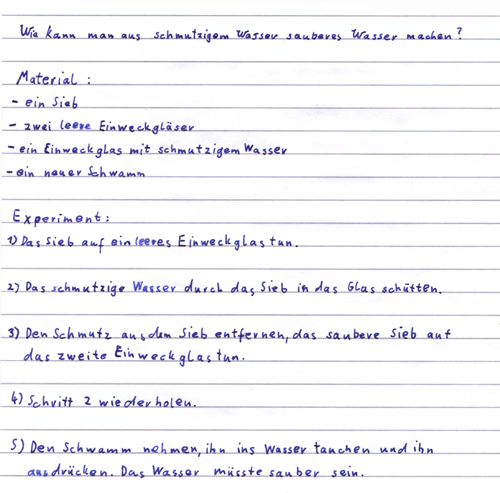 Wie kann man aus schmutzigem Wasser sauberes Wasser machen?
Material:
- ein Sieb
- zwei leere Einweckgläser
- ein Einweckglas mit schmutzigem Wasser
- ein neuer Schwamm
Experiment:
1) Das Sieb auf ein leeres Einweckglas tun.
2) Das schmutzige Wasser durch das Sieb in das Glas schütten.
3) Den Schmutz aus dem Sieb entfernen, das saubere Sieb auf
das zweite Einweckglas tun.
4) Schritt 2 wiederholen.
5) Den Schwamm nehmen, ihn ins Wasser tauchen und ihn
ausdrücken. Das Wasser müsste sauber sein.